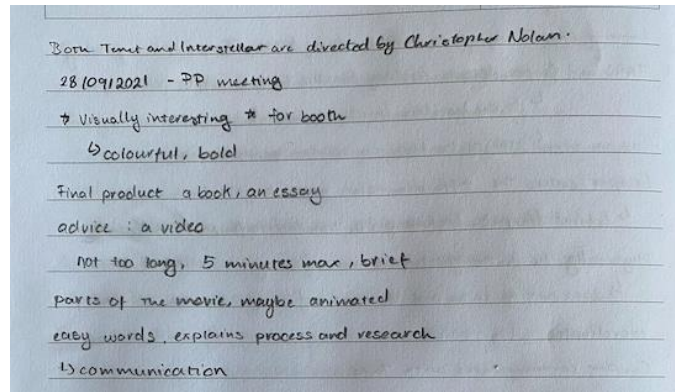 Both Tenet and Interstellar are directed by Christopher Nolan.
28/09/2021 - PP meeting
* Visually interesting * for booth
↳ colourful, bold
Final product a book, an essay
advice : a video
not too long, 5 minutes max, brief
parts of the movie, maybe animated
easy words, explains process and research
↳ communication